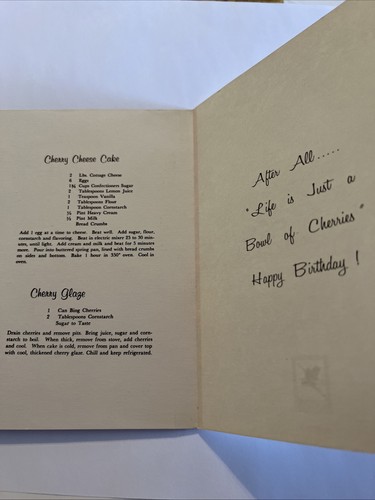 Cherry Cheese Cake
2 Lbs. Cottage Cheese
6 Eggs
1¾ Cups Confectioners Sugar
2 Tablespoons Lemon Juice
1 Teaspoon Vanilla
2 Tablespoons Flour
1 Tablespoon Cornstarch
½ Pint Heavy Cream
½ Pint Milk
Bread Crumbs
Add 1 egg at a time to cheese. Beat well. Add sugar, flour,
cornstarch and flavoring. Beat in electric mixer 25 to 30 min-
utes, until light. Add cream and milk and beat for 5 minutes
more. Pour into buttered spring pan, lined with bread crumbs
on sides and bottom. Bake 1 hour in 350° oven. Cool in
oven.
Cherry Glaze
1 Can Bing Cherries
2 Tablespoons Cornstarch
Sugar to Taste
Drain cherries and remove pits. Bring juice, sugar and corn-
starch to boil. When thick, remove from stove, add cherries
and cool. When cake is cold, remove from pan and cover top
with cool, thickened cherry glaze. Chill and keep refrigerated.
After All.....
"Life is Just a
Bowl of Cherries"
Happy Birthday!